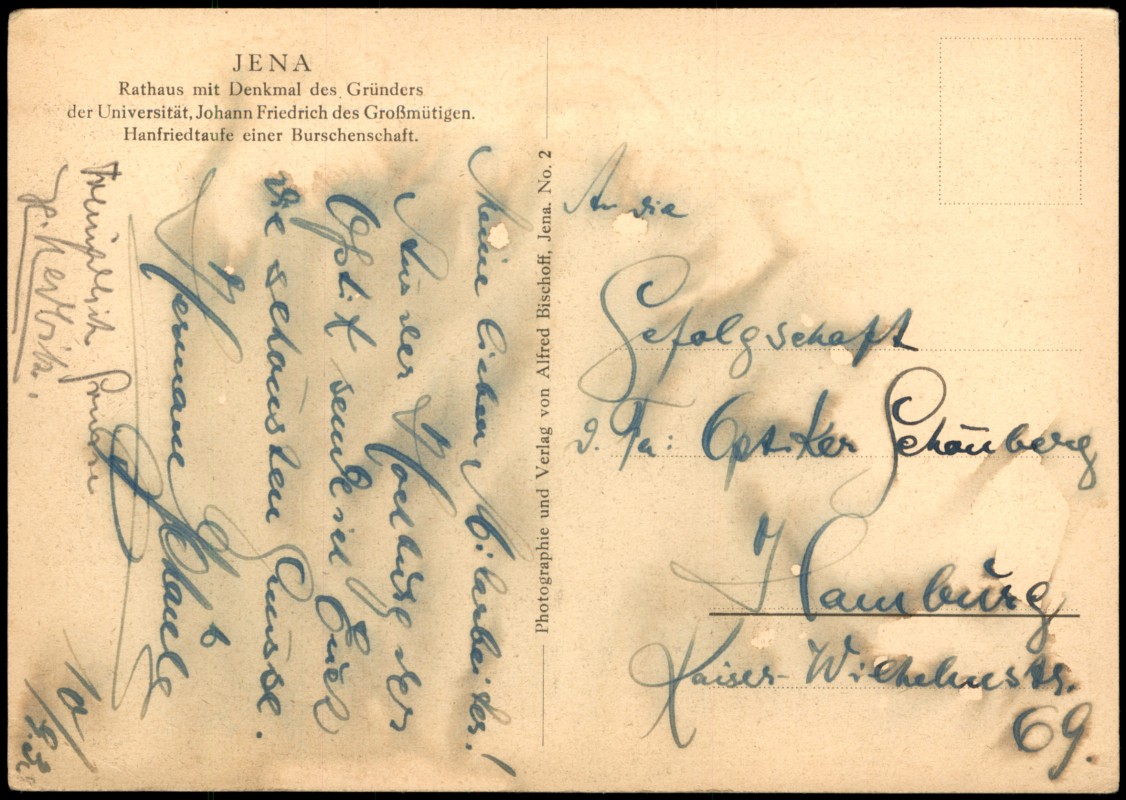 JENA
Rathaus mit Denkmal des Gründers
der Universität, Johann Friedrich des Großmütigen.
Hanfriedtaufe einer Burschenschaft.
Meine lieben Mitarbeiter!
Aus der Hochburg der
Optik sendet Euch
die schönsten Grüsse.
Hermann
Photographie und Verlag von Alfred Bischoff, Jena. No. 2
An die
Gefolgschaft
d. Fa: Optiker Schönberg
Hamburg
Kaiser-Wilhelmstr.
69.